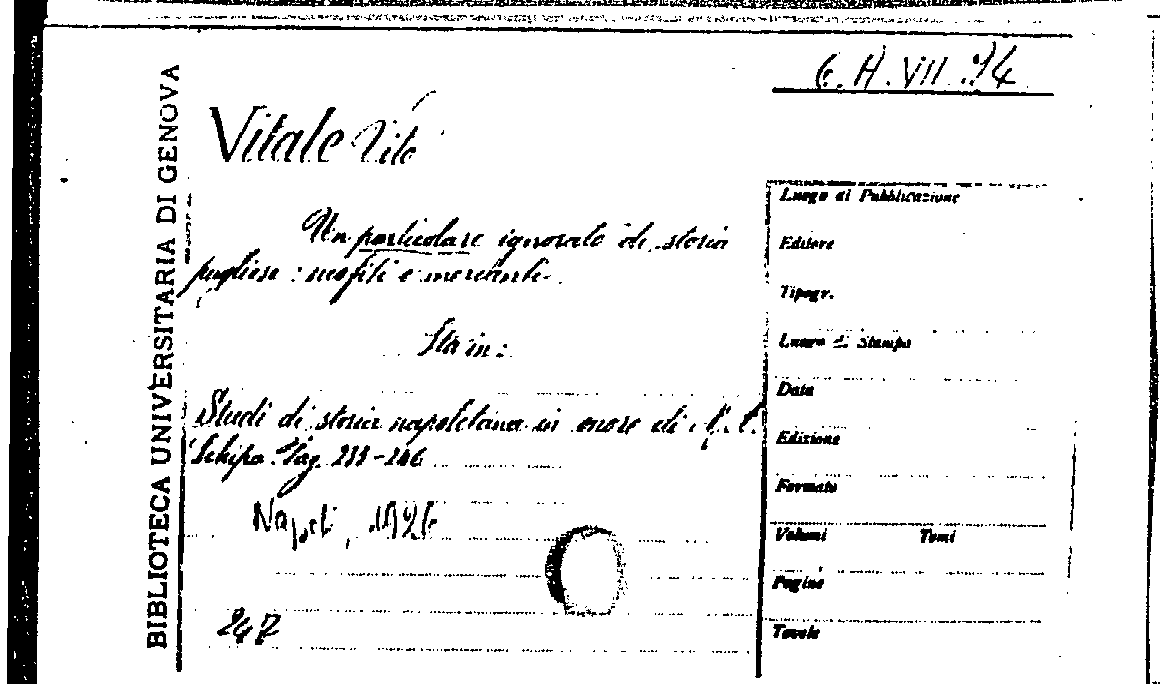 G. H. VII. 94
BIBLIOTECA UNIVERSITARIA DI GENOVA
Vitale Vito
Un particolare ignorato di storia
pugliese: neofiti e mercanti.
Sta in:
Studi di storia napoletana in onore di M.
Schipa. Pag. 233-246
Napoli, 1926
247
Luogo di Pubblicazione
Editore
Tipogr.
Luogo di Stampa
Data
Edizione
Formato
Volumi Tomi
Pagine
Tavole